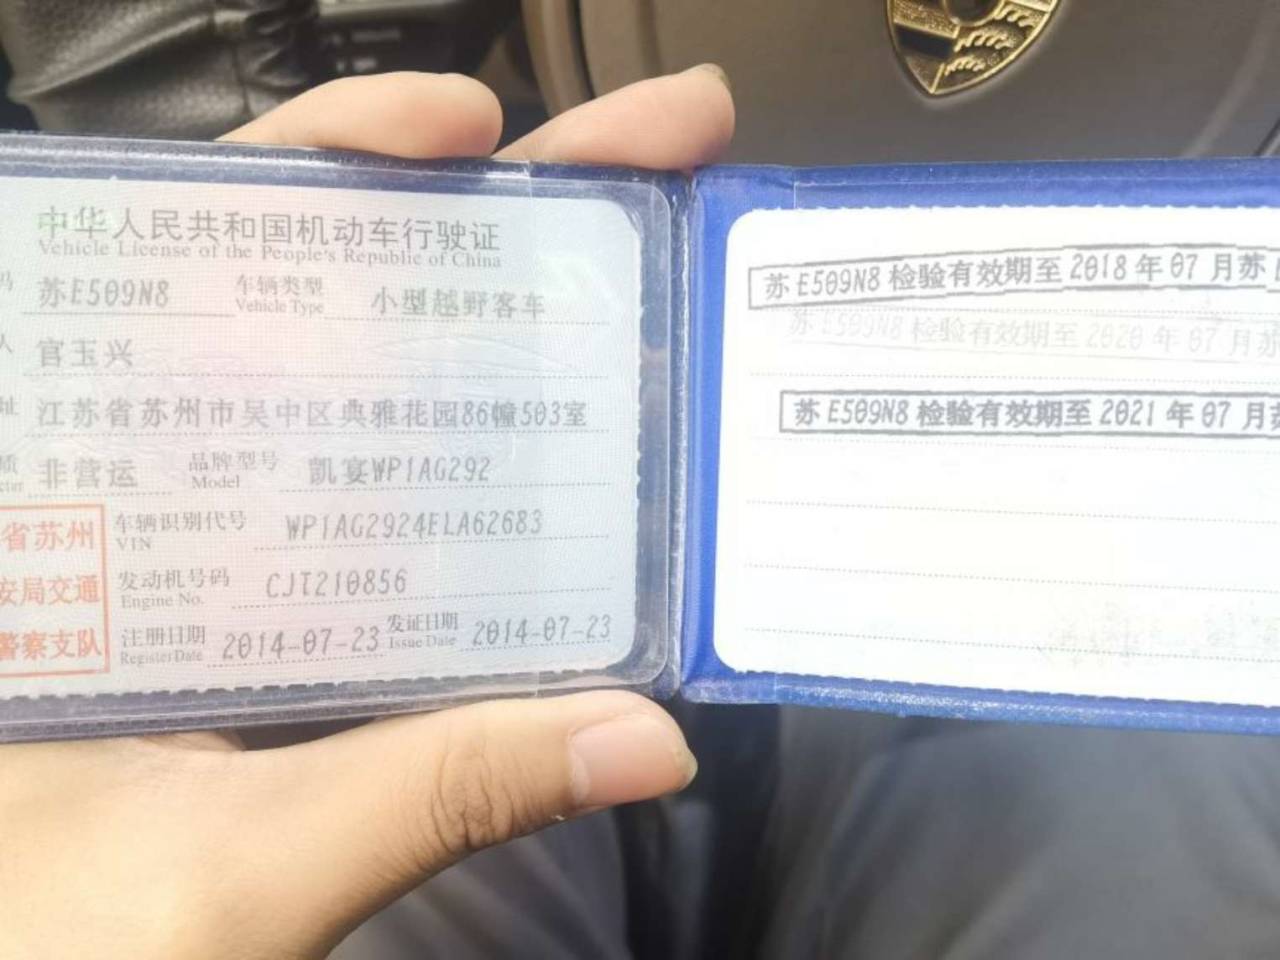 中华人民共和国机动车行驶证
Vehicle License of the People's Republic of China
码 苏E509N8 车辆类型 Vehicle Type 小型越野客车
人 官玉兴
址 江苏省苏州市吴中区典雅花园86幢503室
质 非营运 品牌型号 Model 凯宴WP1AG292
省苏州
安局交通
警察支队
车辆识别代号 VIN WP1AG2924ELA62683
发动机号码 Engine No. CJT210856
注册日期 Register Date 2014-07-23 发证日期 Issue Date 2014-07-23
苏E509N8 检验有效期至 2018年07月苏
苏E509N8 检验有效期至 2020年07月苏
苏E509N8 检验有效期至 2021年07月苏